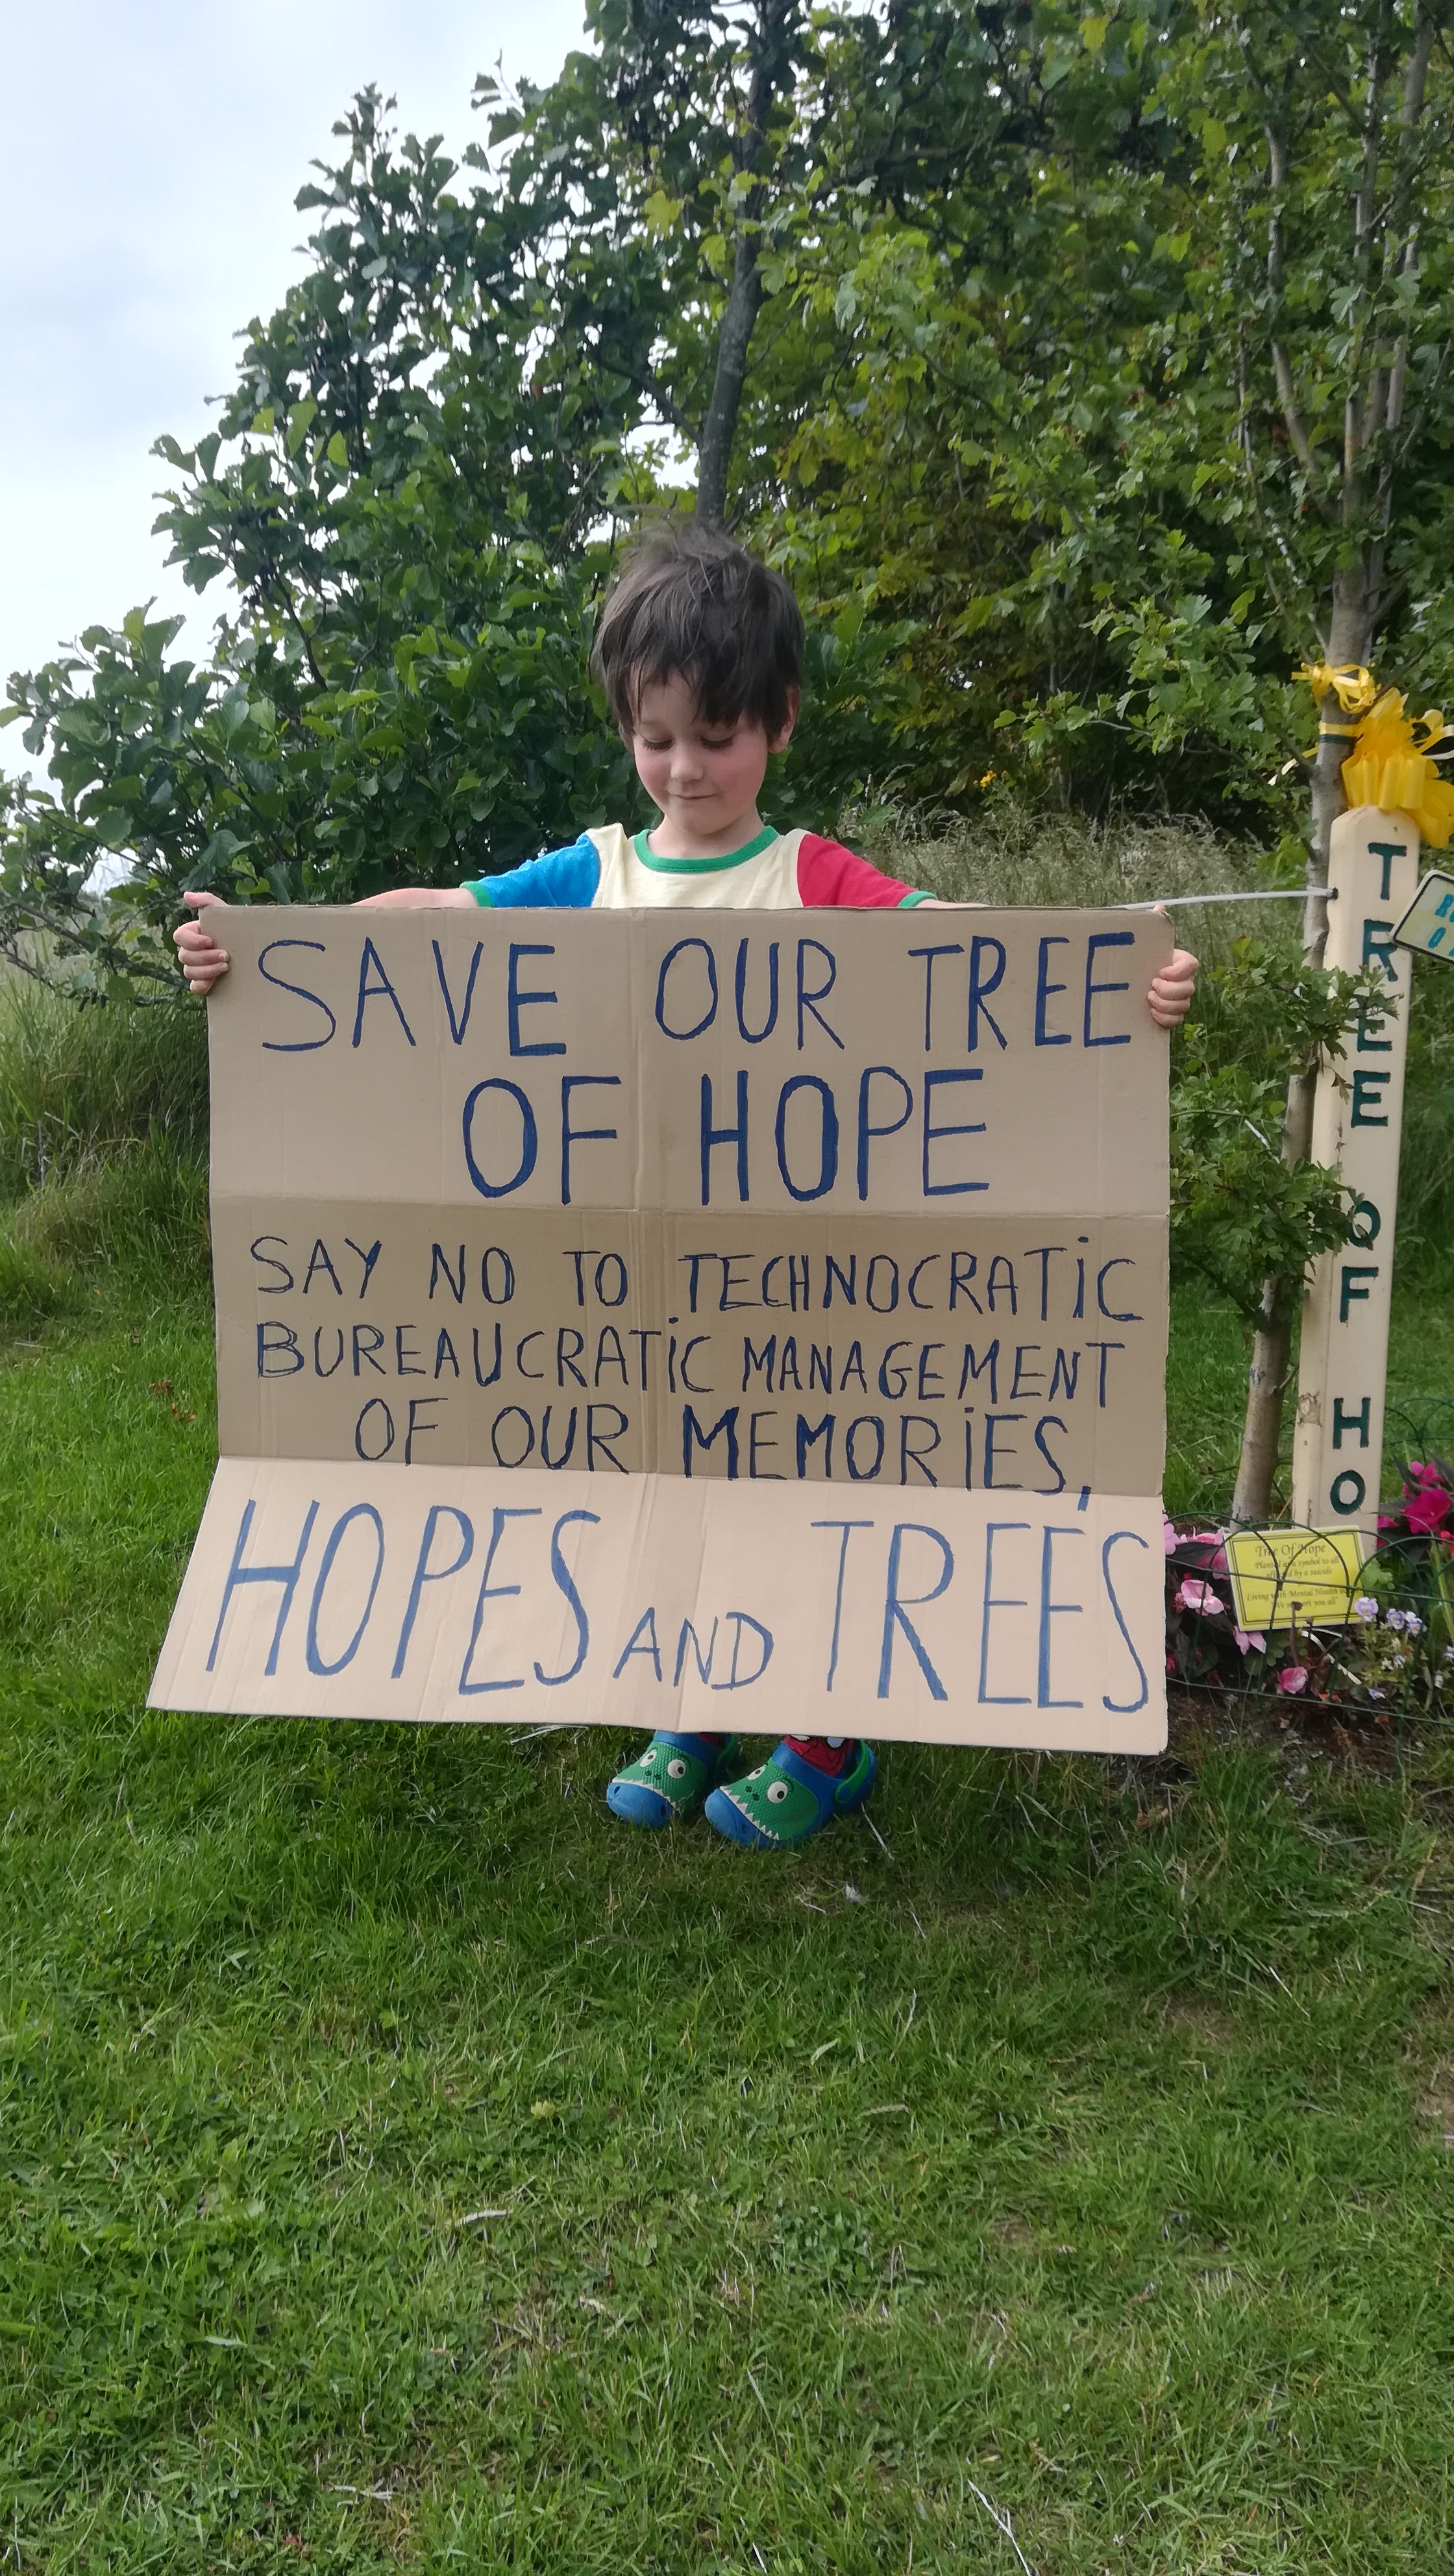 SAVE OUR TREE
OF HOPE
SAY NO TO TECHNOCRATiC
BUREAUCRATiC MANAGEMENT
OF OUR MEMORiES,
HOPES AND TREES
TREE OF HO
Tree Of Hope
Planted as a symbol to all
by a suicide
Living with Mental Health
We support you all